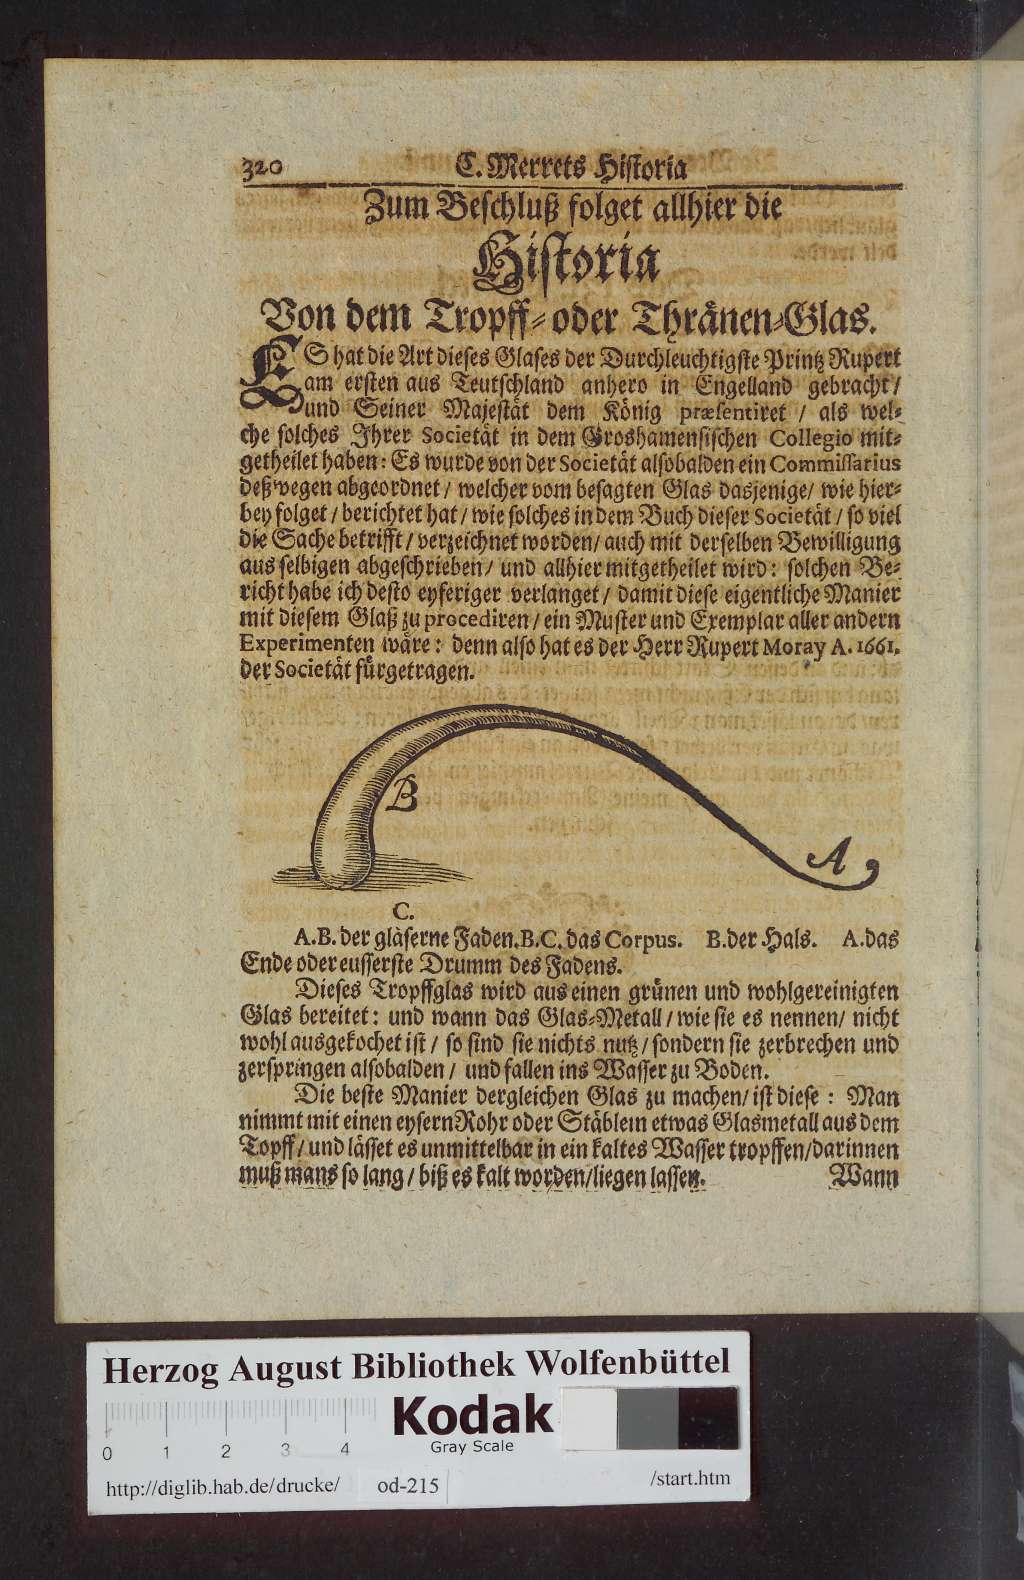 320
C. Merrets Historia
Zum Beschluß folget allhier die
Historia
Von dem Tropff- oder Thränen-Glas.
ES hat die Art dieses Glases der Durchleuchtigste Printz Rupert
am ersten aus Teutschland anhero in Engelland gebracht /
und Seiner Majestät dem König præsentiret / als wel-
che solches Ihrer Societät in dem Groshamensischen Collegio mit-
getheilet haben: Es wurde von der Societät alsobalden ein Commissarius
deßwegen abgeordnet / welcher vom besagten Glas dasjenige / wie hier-
bey folget / berichtet hat / wie solches in dem Buch dieser Societät / so viel
die Sache betrifft / verzeichnet worden / auch mit derselben Bewilligung
aus selbigen abgeschrieben / und allhier mitgetheilet wird: solchen Be-
richt habe ich desto eyferiger verlanget / damit diese eigentliche Manier
mit diesem Glaß zu procediren / ein Muster und Exemplar aller andern
Experimenten wäre: denn also hat es der Herr Rupert Moray A. 1661.
der Societät fürgetragen.
B
A
C.
A.B. der gläserne Faden. B.C. das Corpus. B. der Hals. A. das
Ende oder eusserste Drumm des Fadens.
Dieses Tropffglas wird aus einen grünen und wohlgereinigten
Glas bereitet: und wann das Glas-Metall / wie sie es nennen / nicht
wohl ausgekochet ist / so sind sie nichts nutz / sondern sie zerbrechen und
zerspringen alsobalden / und fallen ins Wasser zu Boden.
Die beste Manier dergleichen Glas zu machen / ist diese : Man
nimmt mit einen eysern Rohr oder Stäblein etwas Glasmetall aus dem
Topff / und lässet es unmittelbar in ein kaltes Wasser tropffen / darinnen
muß mans so lang / biß es kalt worden / liegen lassen. Wann
Herzog August Bibliothek Wolfenbüttel
0 1 2 3 4
Kodak
Gray Scale
http://diglib.hab.de/drucke/ od-215 /start.htm